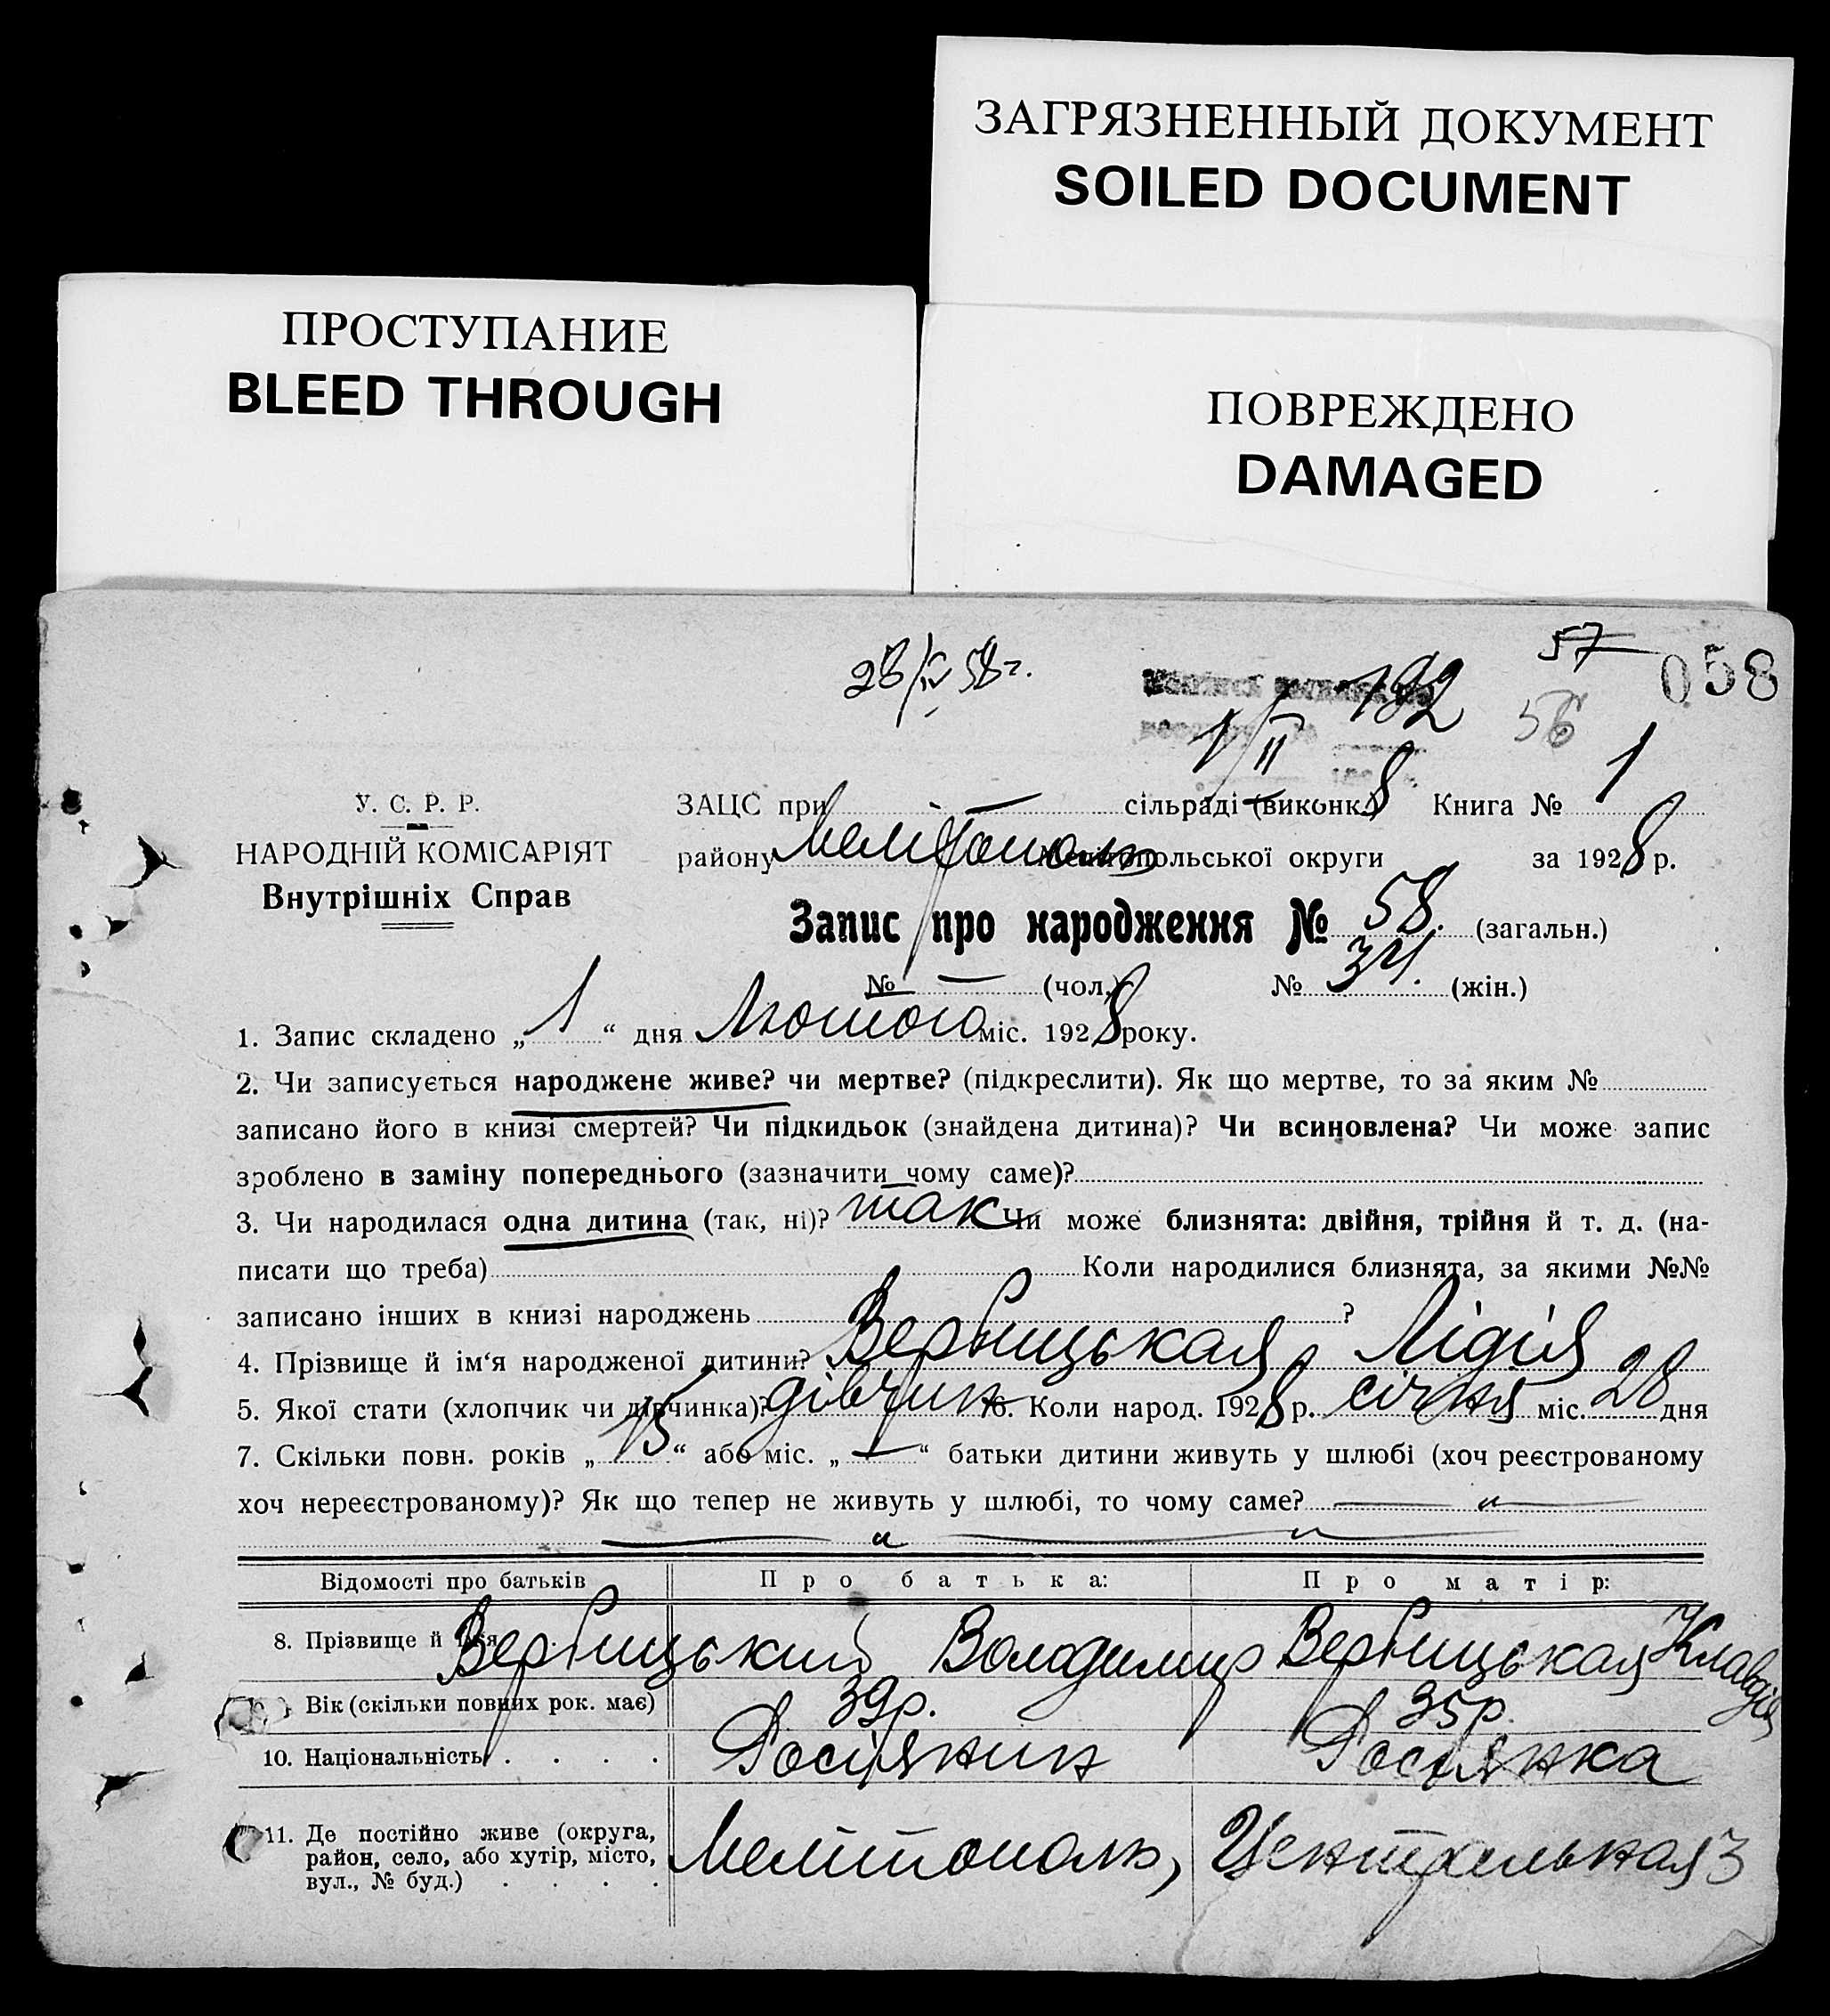 ЗАГРЯЗНЕННЫЙ ДОКУМЕНТ
SOILED DOCUMENT
ПРОСТУПАНИЕ
BLEED THROUGH
ПОВРЕЖДЕНО
DAMAGED
57
058
28/IV 58 г.
192
56
1/II
8
У. С. Р. Р.
НАРОДНІЙ КОМІСАРІЯТ
Внутрішніх Справ
ЗАЦС при — сільраді (виконк.) Книга № 1
району Мелітополь Мелітопольської округи за 1928 р.
Запис про народження № 58. (загальн.)
№ — (чол.) № 34. (жін.)
1. Запис складено „ 1 “ дня Лютого міс. 1928 року.
2. Чи записується народжене живе? чи мертве? (підкреслити). Як що мертве, то за яким №
записано його в книзі смертей? Чи підкидьок (знайдена дитина)? Чи всиновлена? Чи може запис
зроблено в заміну попереднього (зазначити чому саме)?
3. Чи народилася одна дитина (так, ні)? так Чи може близнята: двійня, трійня й т. д. (на-
писати що треба) Коли народилися близнята, за якими №№
записано інших в книзі народжень ?
4. Прізвище й ім‘я народженої дитини? Вербицькая Лідія
5. Якої стати (хлопчик чи дівчинка)? дівчин 6. Коли народ. 1928 р. січня міс. 28 дня
7. Скільки повн. років „ 15 “ або міс. „ — “ батьки дитини живуть у шлюбі (хоч реєстрованому
хоч нереєстрованому)? Як що тепер не живуть у шлюбі, то чому саме? — „ —
— „ — „
Відомості про батьків Про батька: Про матір:
8. Прізвище й ім‘я Вербицький Володимир Вербицькая Клавдія
Вік (скільки повних рок. має) 39 р. 35 р.
10. Національність . . . . Росіянин Росіянка
11. Де постійно живе (округа,
район, село, або хутір, місто,
вул., № буд.) . . . . Мелітополь, Центральная 3